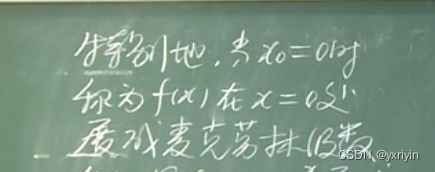 特别地,当x₀=0时
称为f(x)在x=0处
展成麦克劳林级数
CSDN @yxriyin